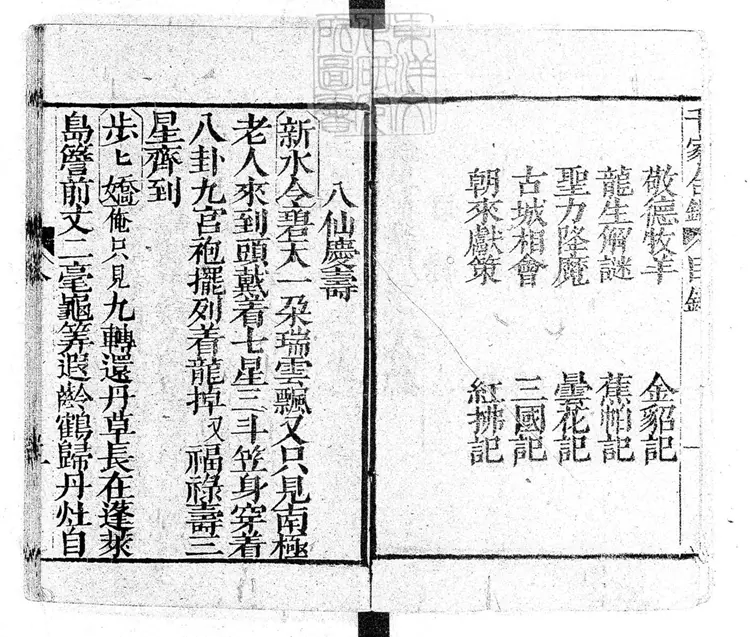 千家合錦 目錄 一
敬德牧羊 金貂記
龍生觧謎 蕉帕記
聖力降魔 曇花記
古城相會 三國記
朝來獻策 紅拂記
八仙慶壽
新水令碧天一朶瑞雲飄又只見南極
老人來到頭戴着七星三斗笠身穿着
八卦九宮袍擺列着龍掉又福祿壽三
星齊到
步〻嬌俺只見九轉還丹草長在蓬萊
島簷前丈二毫龜筭遐齡鶴歸丹灶自